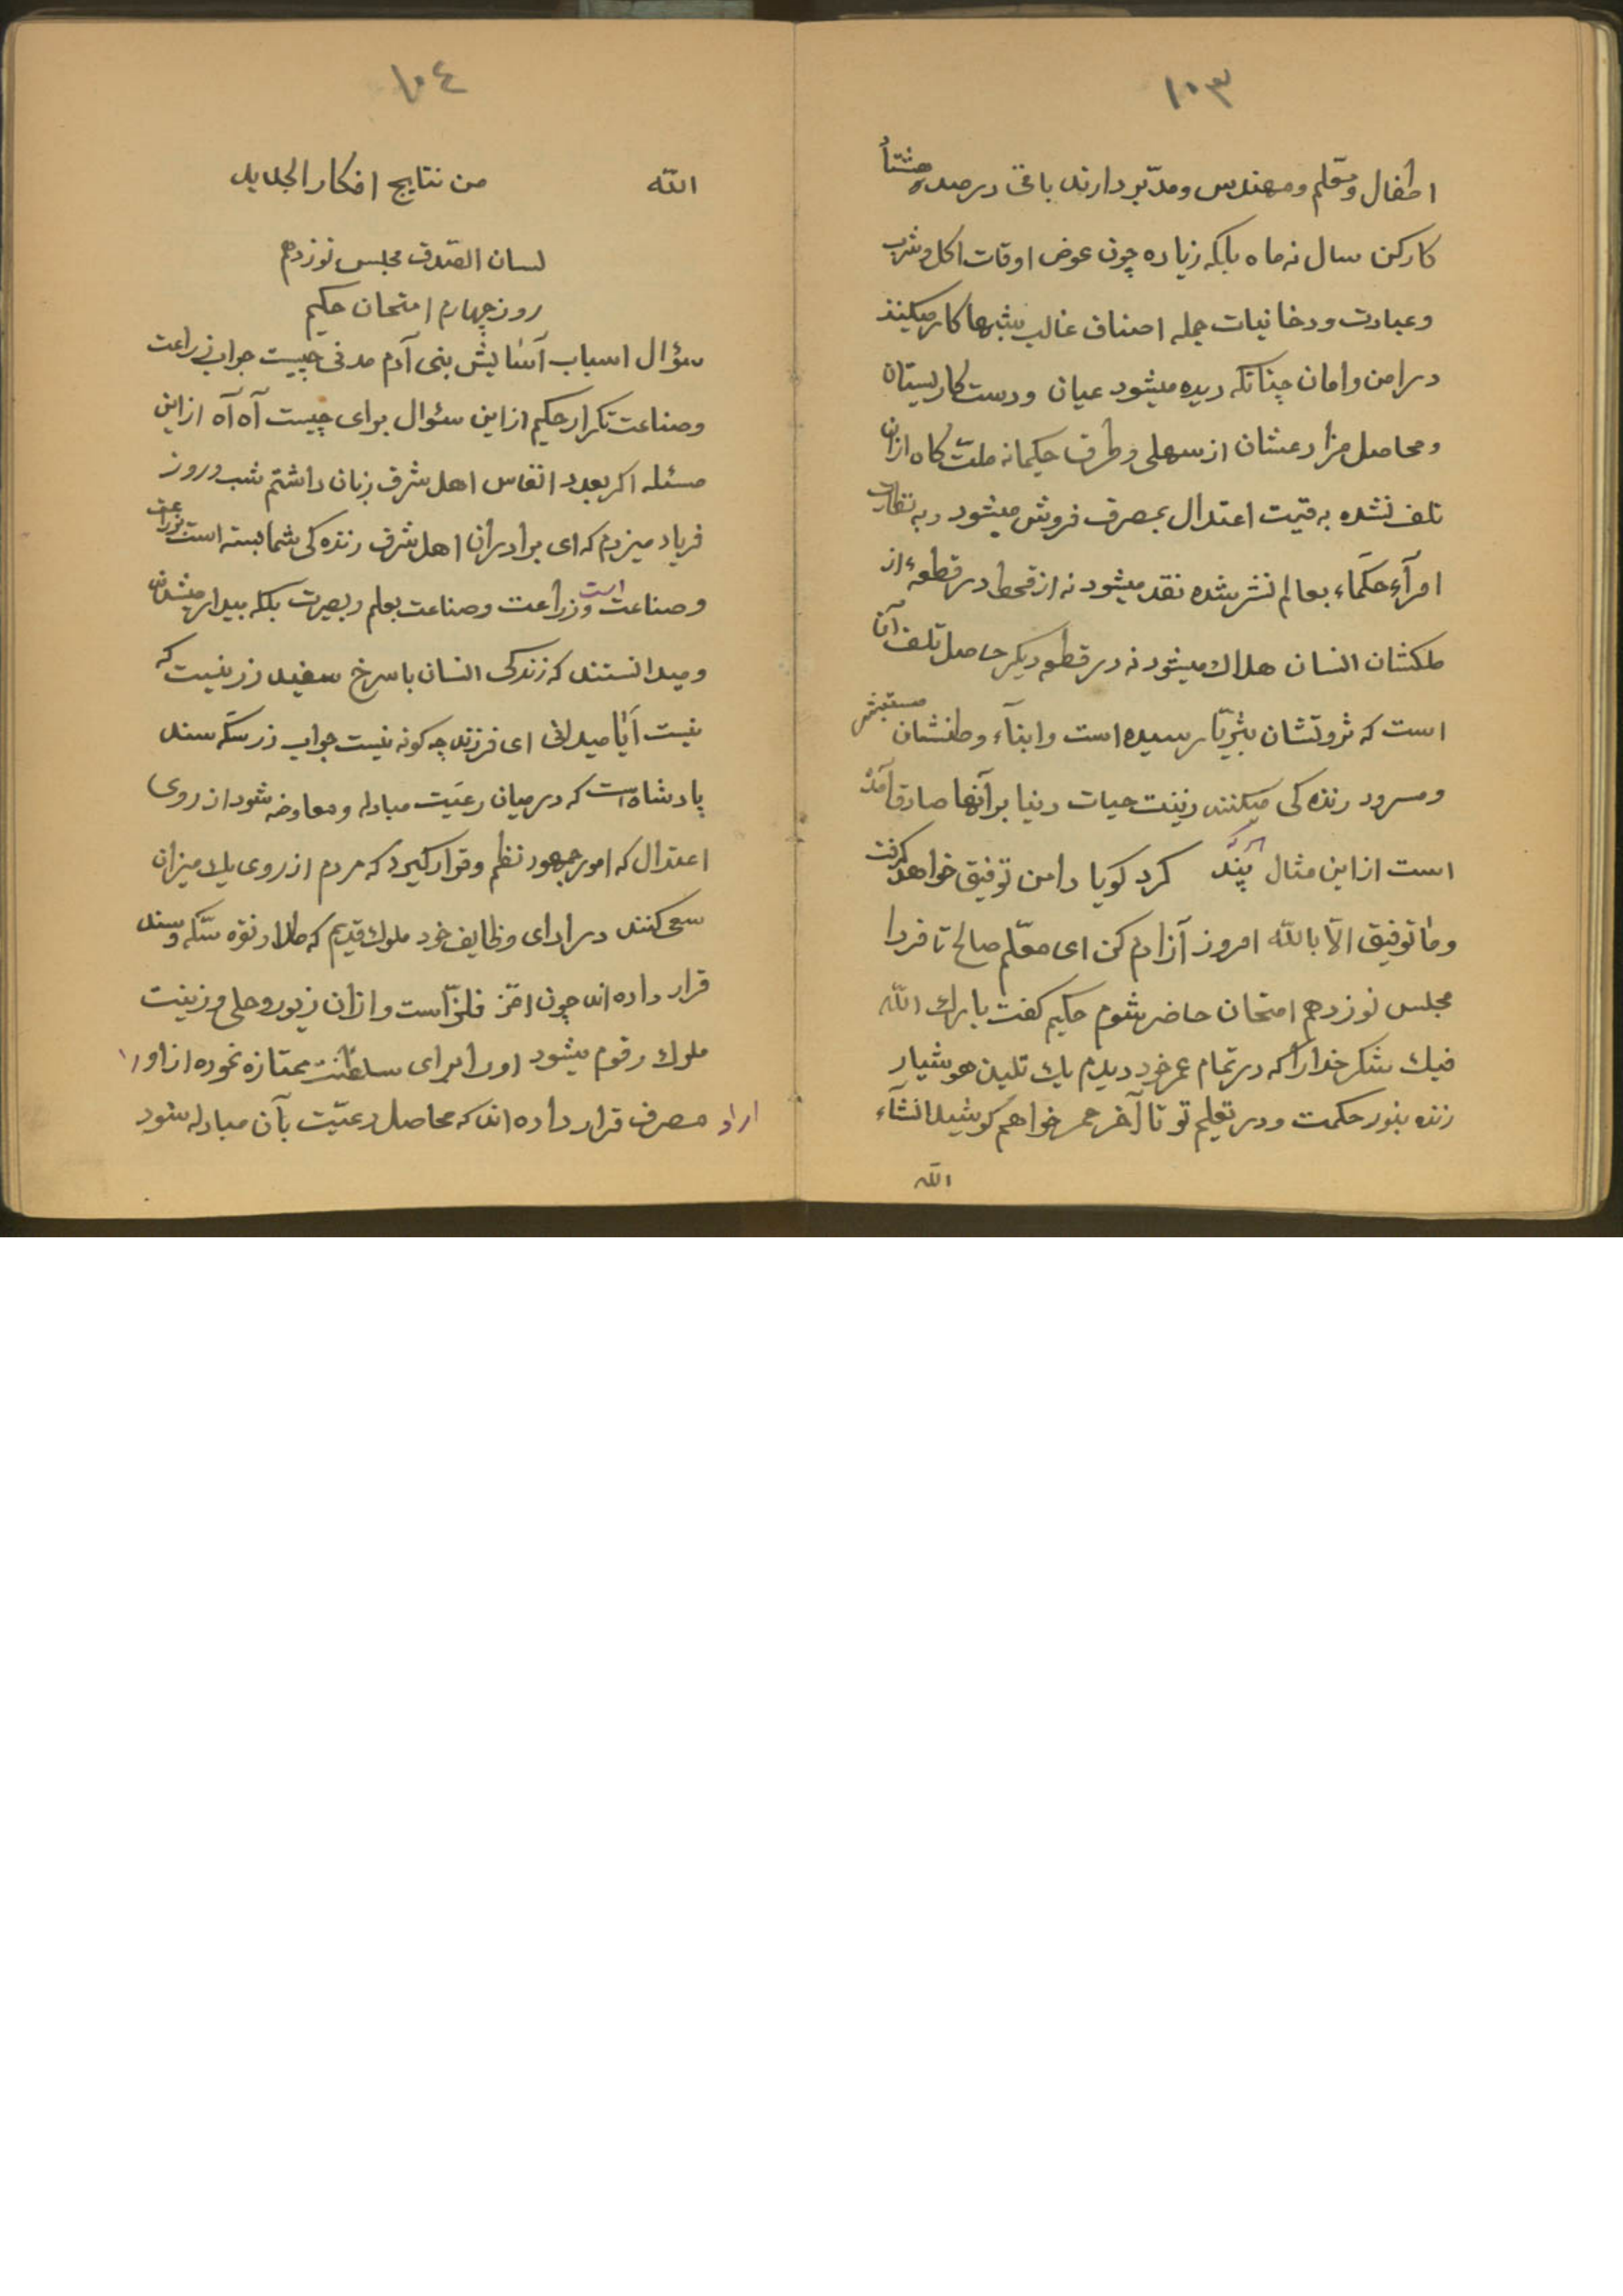 ١٠٣
اطفال ومعلم ومهندس ومدبّر دارند باقی درصد هشتاد
کارکن سال نه ماه بلکه زیاده چون عوض اوقات اکل وشرب
وعبادت ودخانیات جمله اصناف غالب شبها کار میکنند
در امن وامان چنانکه دیده میشود عیان ودست کاریستان
ومحاصل مزارعشان از سهلی وطرف حکیمانه ملت کاه ازان
تلف نشده به قیمت اعتدال بمصرف فروش میشود وبه نظارت
امرآء حکمآء بعالم نشر شده نقد میشود نه از قحط در قطعهٔ از
ملکشان انسان هلاك میشود نه در قطعه دیکر حاصل تلف آن
است که ثروتشان بثریّا رسیده است وابنآء وطنشان مستبشر
ومسرود زنده کی میکنند زینت حیات دنیا بر آنها صادق آمده
است از این مثال پند کرد کویا دامن توفیق خواهد کرفت
وما توفیق الّا باللّه امروز آزادم کن ای معلّم صالح تا فردا
مجلس نوزدهم امتحان حاضر شوم حکیم کفت بارك اللّه
فیك شکر خدا را که در تمام عمر خود دیدم یك تلمین هوشیار
زنده بنور حکمت ودر تعلیم تو تا آخر عمر خواهم کوشید انشآء
اللّه
١٠٤
اللّه من نتایج افکار الجدید
لسان الصّدق مجلس نوزدهم
روز چهارم امتحان حکیم
سؤال اسباب آسایش بنی آدم مدنی چیست جواب زراعت
وصناعت تکرار حکیم از این سئوال برای چیست آه آه از این
مسئله اکر بعدد انفاس اهل شرق زبان داشتم شب وروز
فریاد میزدم که ای برادران اهل شرق زنده کی شما بسته است بزراعت
وصناعت است وزراعت وصناعت بعلم وبصیرت بلکه بیدار میشدند
ومیدانستند که زندکی انسان با سرخ سفید زر نیست که
نیست آیا میدانی ای فرزند چه کونه نیست جواب زر سکّه سند
پادشاه است که در میان رعیّت مبادله ومعاوضه شود از روی
اعتدال که امور جمهور نظم وقرار کیرد که مردم از روی یك میزان
سعی کنند در ادای وظایف خود ملوك قدیم که طلا ونقره سکّه وسند
قرار داده اند چون اعّز فلزّاست وازان زیور وحلی وزینت
ملوك رقوم میشود اورا برای سلطنت ممتازه نموده از اورا
اراد مصرف قرار داده اند که محاصل رعیّت بآن مبادله شود